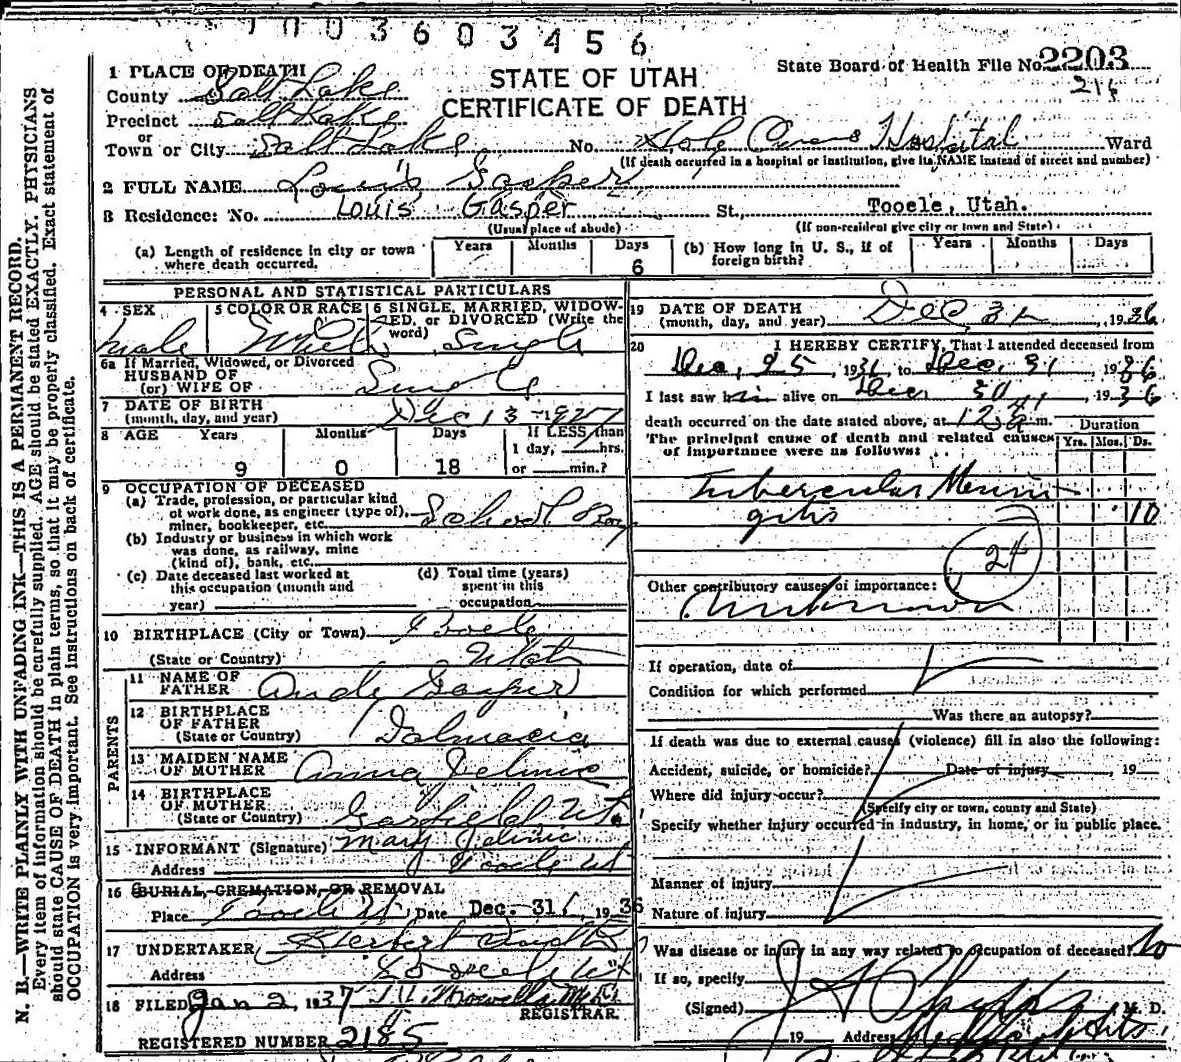 7003603456
STATE OF UTAH
CERTIFICATE OF DEATH
State Board of Health File No. 2203
216
1 PLACE OF DEATH
County Salt Lake
Precinct Salt Lake
or
Town or City Salt Lake No. Holy Cross Hospital Ward
(If death occurred in a hospital or institution, give its NAME instead of street and number)
2 FULL NAME Louis Gasper
3 Residence: No. Louis Gasper St., Tooele, Utah.
(Usual place of abode) (If non-resident give city or town and State)
(a) Length of residence in city or town where death occurred. Years Months Days 6
(b) How long in U. S., if of foreign birth? Years Months Days
PERSONAL AND STATISTICAL PARTICULARS
4 SEX male
5 COLOR OR RACE White
6 SINGLE, MARRIED, WIDOWED, or DIVORCED (Write the word) Single
6a If Married, Widowed, or Divorced
HUSBAND OF
(or) WIFE OF Single
7 DATE OF BIRTH
(month, day, and year) Dec 13-1927
8 AGE Years Months Days If LESS than
1 day, hrs.
9 0 18 or min.?
9 OCCUPATION OF DECEASED
(a) Trade, profession, or particular kind
of work done, as engineer (type of), School Boy
miner, bookkeeper, etc.
(b) Industry or business in which work
was done, as railway, mine
(kind of), bank, etc.
(c) Date deceased last worked at
this occupation (month and
year)
(d) Total time (years)
spent in this
occupation
10 BIRTHPLACE (City or Town) Tooele
(State or Country) Utah
PARENTS
11 NAME OF
FATHER Gasper
12 BIRTHPLACE
OF FATHER
(State or Country) Dalmacia
13 MAIDEN NAME
OF MOTHER Anna Jelinic
14 BIRTHPLACE
OF MOTHER
(State or Country) Garfield Ut.
15 INFORMANT (Signature) Mary Jelinic
Address Tooele Ut
16 BURIAL, CREMATION, OR REMOVAL
Place Tooele Ut, Date Dec. 31, 1936
17 UNDERTAKER Herbert
Address Tooele Ut
18 FILED Jan 2, 1937
REGISTRAR.
REGISTERED NUMBER 2185
19 DATE OF DEATH
(month, day, and year) Dec 31, 1936
20 I HEREBY CERTIFY, That I attended deceased from
Dec, 25, 1936, to Dec, 31, 1936
I last saw him alive on Dec, 30, 1936
death occurred on the date stated above, at m.
The principal cause of death and related causes
of importance were as follows:
Duration
Yrs. Mos. Ds.
Tubercular Menin-
gitis 10
24
Other contributory causes of importance:
Unknown
If operation, date of
Condition for which performed
Was there an autopsy?
If death was due to external causes (violence) fill in also the following:
Accident, suicide, or homicide? Date of injury, 19
Where did injury occur?
(Specify city or town, county and State)
Specify whether injury occurred in industry, in home, or in public place.
Manner of injury
Nature of injury
Was disease or injury in any way related to occupation of deceased? No
If so, specify
(Signed) M. D.
19 Address Medical Arts
N. B.—WRITE PLAINLY WITH UNFADING INK—THIS IS A PERMANENT RECORD.
Every item of information should be carefully supplied. AGE should be stated EXACTLY. PHYSICIANS
should state CAUSE OF DEATH in plain terms, so that it may be properly classified. Exact statement of
OCCUPATION is very important. See instructions on back of certificate.